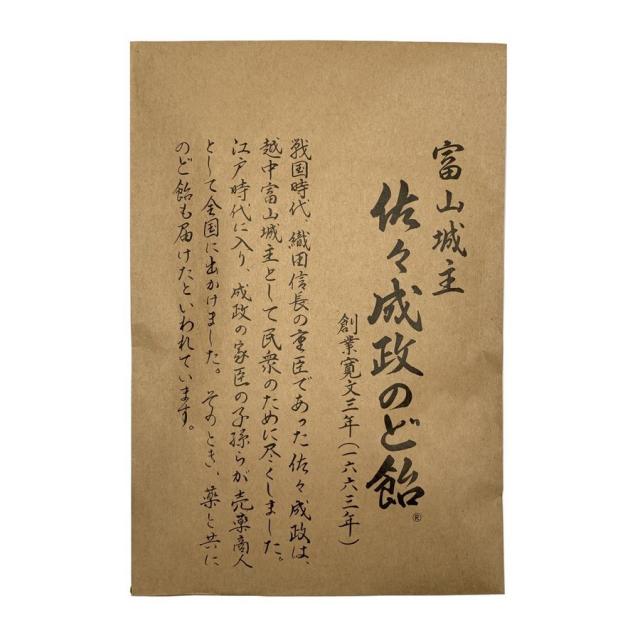 富山城主
佐々成政のど飴®
創業寛文三年(一六六三年)
戦国時代、織田信長の重臣であった佐々成政は、
越中富山城主として民衆のために尽くしました。
江戸時代に入り、成政の家臣の子孫らが売薬商人
として全国に出かけました。そのとき、薬と共に
のど飴も届けたといわれています。